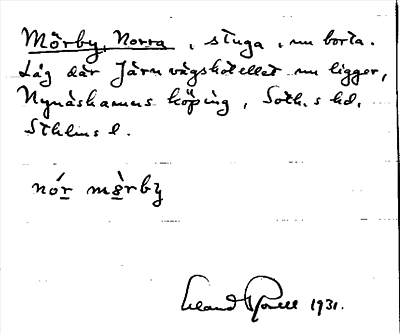 Mörby, Norra, stuga, nu borta.
Låg där Järnvägshotellet nu ligger,
Nynäshamns köping, Soth.s hd.
Sthlms l.
nór mèrby
1931.